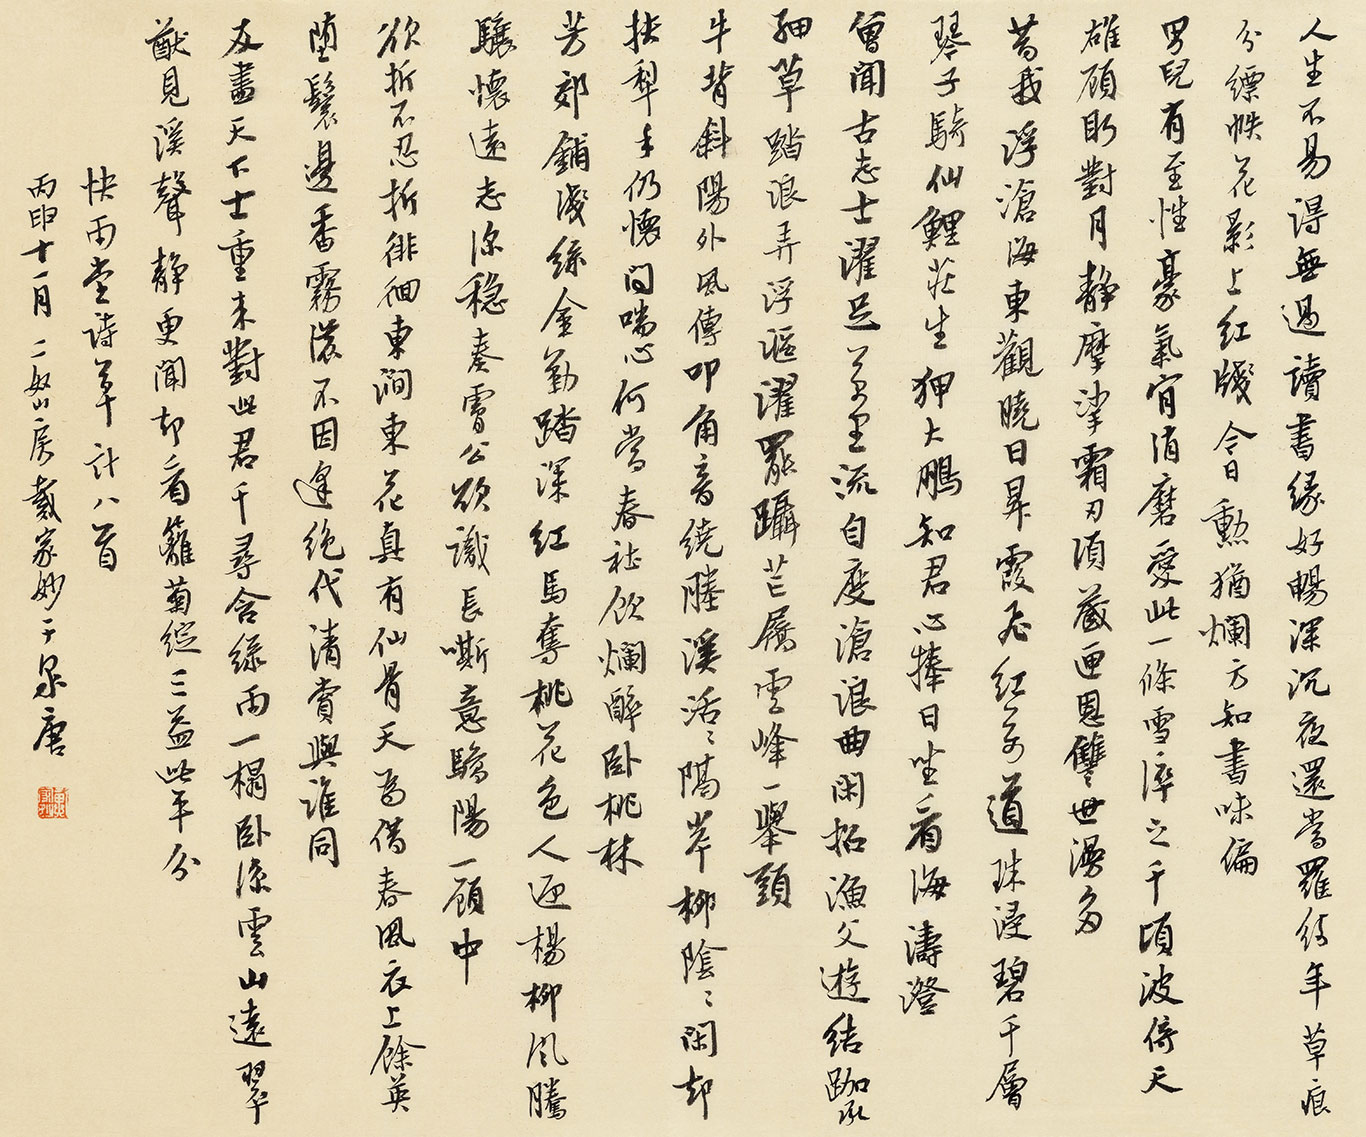 人生不易得無過讀書緣好暢深沉夜還嘗羅綺年草痕
分縹帙花影上紅牋今日勲猶爛方知書味偏
男兒有至性豪氣肯消磨愛此一條雪淬之千頃波倚天
雄顧盻對月靜摩挲霜刃須藏匣恩讐世湯多
昔我浮滄海東觀曉日昇霞飛紅萬道珠浸碧千層
琴子騎仙鯉莊生狎大鵬知君心捧日坐看海濤澄
曾聞古志士濯足萬里流自度滄浪曲閑招漁父遊結跏
細草踏浪弄浮漚濯罷躡芒屩雲峰一舉頭
牛背斜陽外風傳叩角音繞塍溪活〻隔岸柳陰〻閑却
扶犁手仍懷問喘心何當春社飲爛醉臥桃林
芳郊鋪淺綠金勒踏深紅馬奪桃花色人迎楊柳風騰
驤懷遠志深穩奏膚公欲識長嘶意驕陽一顧中
欲折不忍折徘徊東澗東花真有仙骨天為借春風衣上餘英
墮鬢邊香霧濃不因逢絕代清賞與誰同
友盡天下士重来對此君千尋含綠雨一榻臥深雲山遠翠
猷見溪聲靜更聞却看籬菊綻三益此平分
快雨堂詩草計八首
丙申十一月二奴山房戴家妙于泉唐